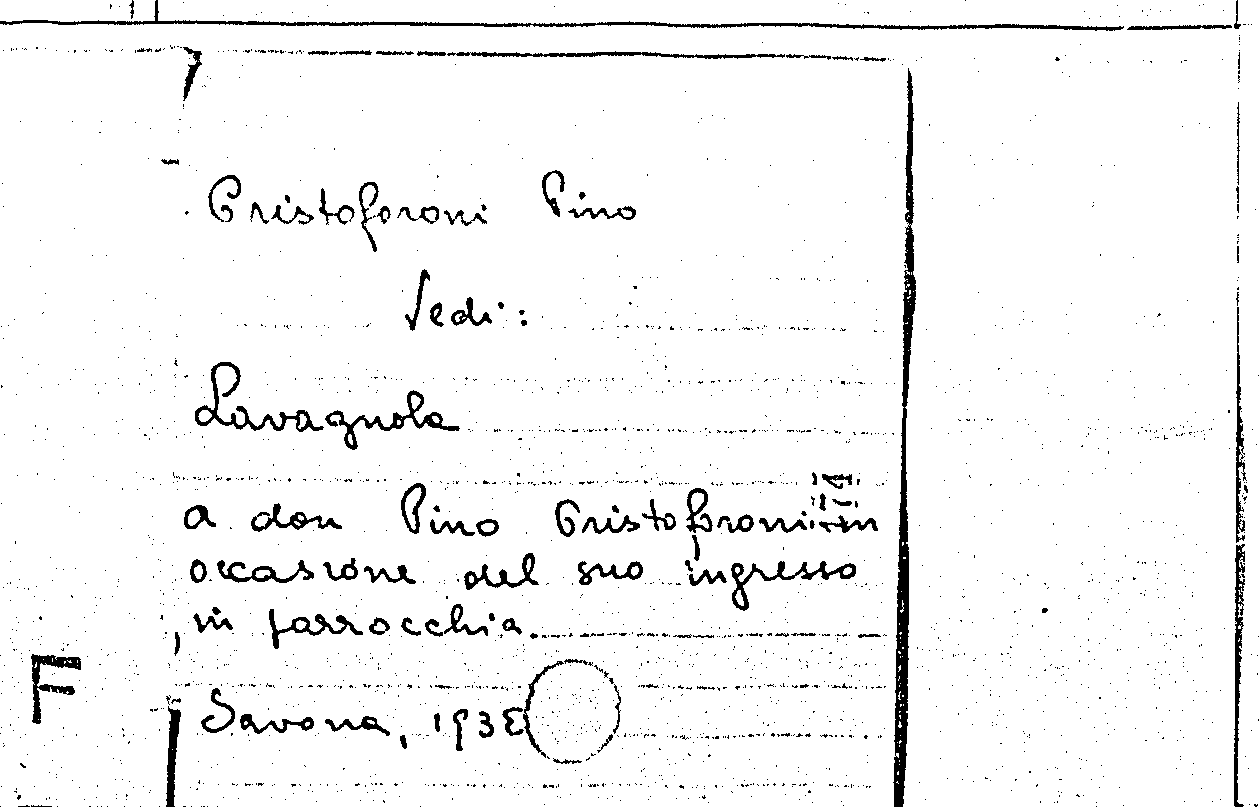 Cristoforoni Pino
Vedi:
Lavagnola
a don Pino Cristoforoni in
occasione del suo ingresso
in parrocchia.
F
Savona, 1938